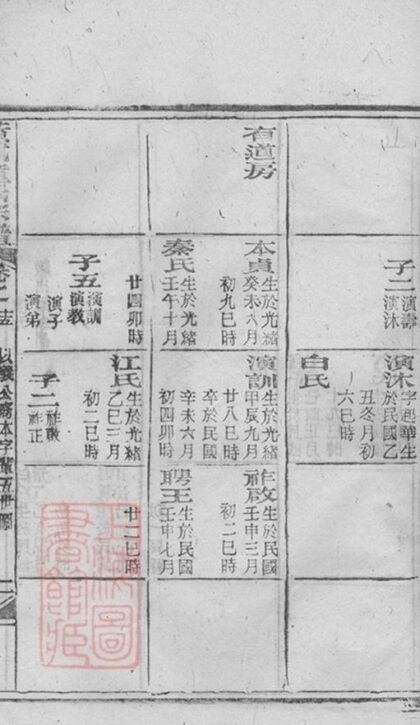 有道房
子二
演壽
演沐
本貞
生於光緒
癸未八月
初九巳時
秦氏
生於光緒
壬午十月
廿四卯時
子五
演訓
演教
演子
演弟
演沐
字起華生
於民國乙
丑冬月初
六巳時
白民
演訓
生於光緒
甲辰九月
廿八巳時
卒於民國
辛未六月
初四卯時
江氏
生於光緒
乙巳三月
初二巳時
子二
祚正
生於民國
壬申三月
初二巳時
聘王
生於民國
壬申七月
廿二巳時
以義公裔本字輩五世圖
上海圖
書館藏